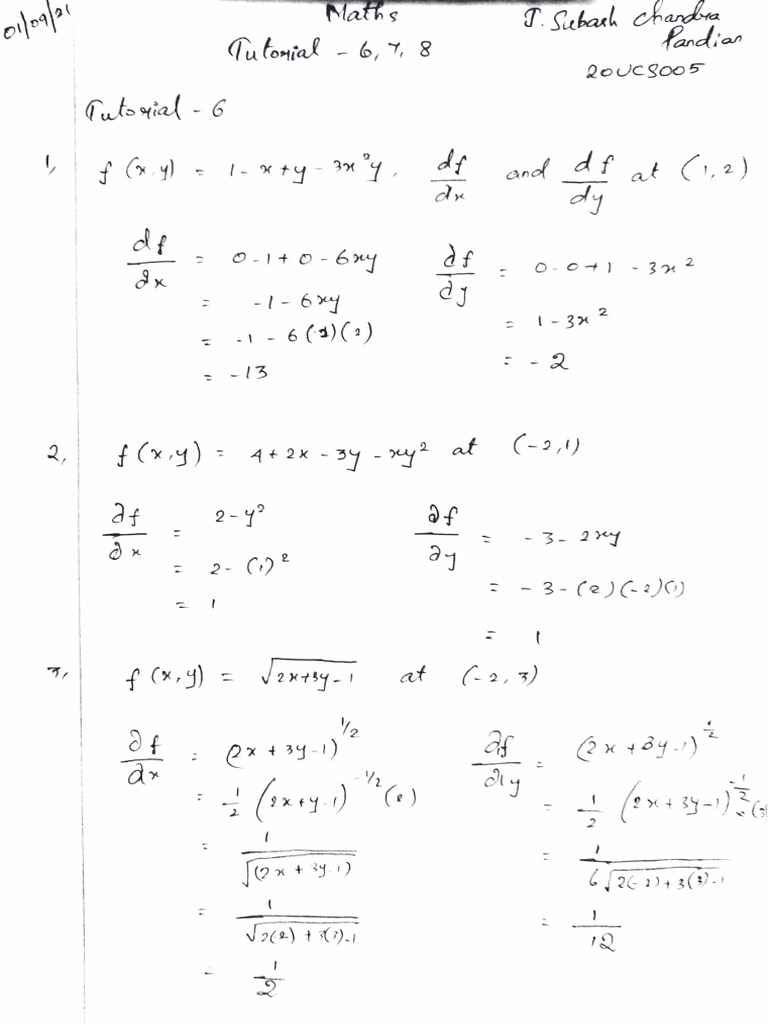 01/09/21
Maths
Tutorial - 6, 7, 8
J. Subash Chandra
Pandian
20UCS005
Tutorial - 6
1, f(x,y) = 1-x+y-3x²y, df/dx and df/dy at (1,2)
∂f/∂x = 0-1+0-6xy
= -1-6xy
= -1-6(1)(2)
= -13
∂f/∂y = 0-0+1-3x²
= 1-3x²
= -2
2, f(x,y) = 4+2x-3y-xy² at (-2,1)
∂f/∂x = 2-y²
= 2-(1)²
= 1
∂f/∂y = -3-2xy
= -3-(2)(-2)(1)
= 1
3, f(x,y) = √2x+3y-1 at (-2,3)
∂f/∂x = (2x+3y-1)^1/2
= 1/2 (2x+y-1)^-1/2 (2)
= 1/√(2x+3y-1)
= 1/√2(2)+3(3)-1
= 1/2
∂f/∂y = (2x+3y-1)^1/2
= 1/2 (2x+3y-1)^-1/2 × (3)
= 1/6√2(-2)+3(3)-1
= 1/12